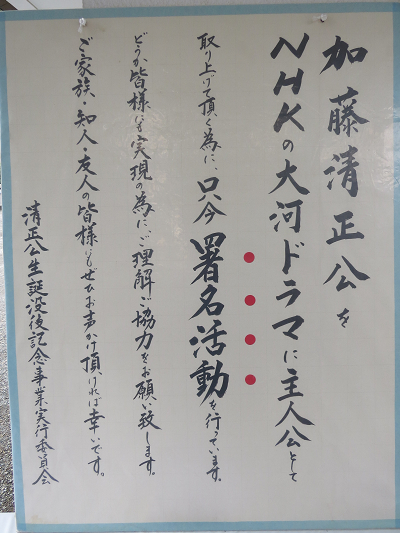 加藤清正公を
NHKの大河ドラマに主人公として
取り上げて頂く為に、只今署名活動を行っています。
どうか皆様にも実現の為に、ご理解ご協力をお願い致します。
ご家族・知人・友人の皆様にもぜひお声かけ頂ければ幸いです。
清正公生誕没後記念事業実行委員会